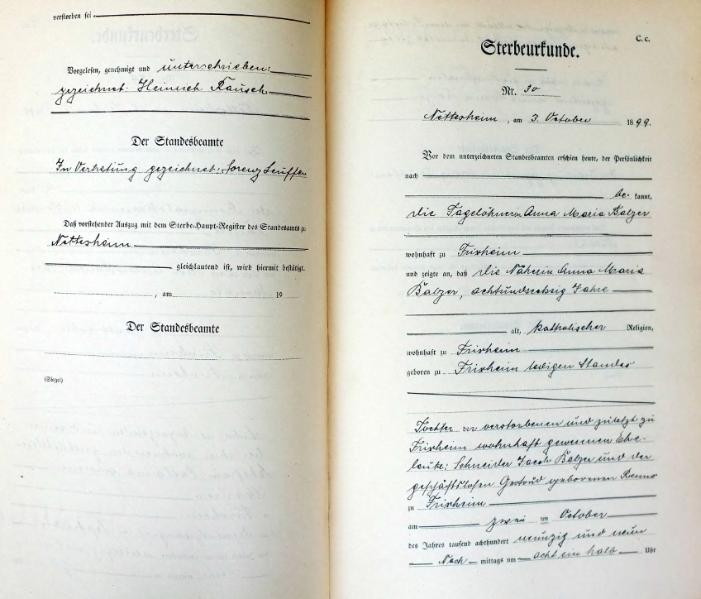 verstorben sei
Vorgelesen, genehmigt und unterschrieben:
gezeichnet: Heinrich Rausch
Der Standesbeamte
In Vertretung gezeichnet: Lorenz
Daß vorstehender Auszug mit dem Sterbe-Haupt-Register des Standesamts zu
Nettesheim
gleichlautend ist, wird hiermit bestätigt.
, am 19
Der Standesbeamte
(Siegel)
C. c.
Sterbeurkunde.
Nr. 30
Nettesheim, am 3. October 1899.
Vor dem unterzeichneten Standesbeamten erschien heute, der Persönlichkeit
nach
be kannt,
die Tagelöhnerin Anna Maria Balzer
wohnhaft zu Frixheim
und zeigte an, daß die Näherin Anna Maria
Balzer, Jahre
alt, katholischer Religion,
wohnhaft zu Frixheim
geboren zu Frixheim ledigen Standes
Tochter der verstorbenen und zuletzt zu
Frixheim wohnhaft gewesenen Ehe-
leute: Schneider Jacob Balzer und der
geschäftslosen Gertrud geborenen
zu Frixheim
am zwei ten October
des Jahres tausend achthundert neunzig und neun
Nach mittags um acht ein halb Uhr